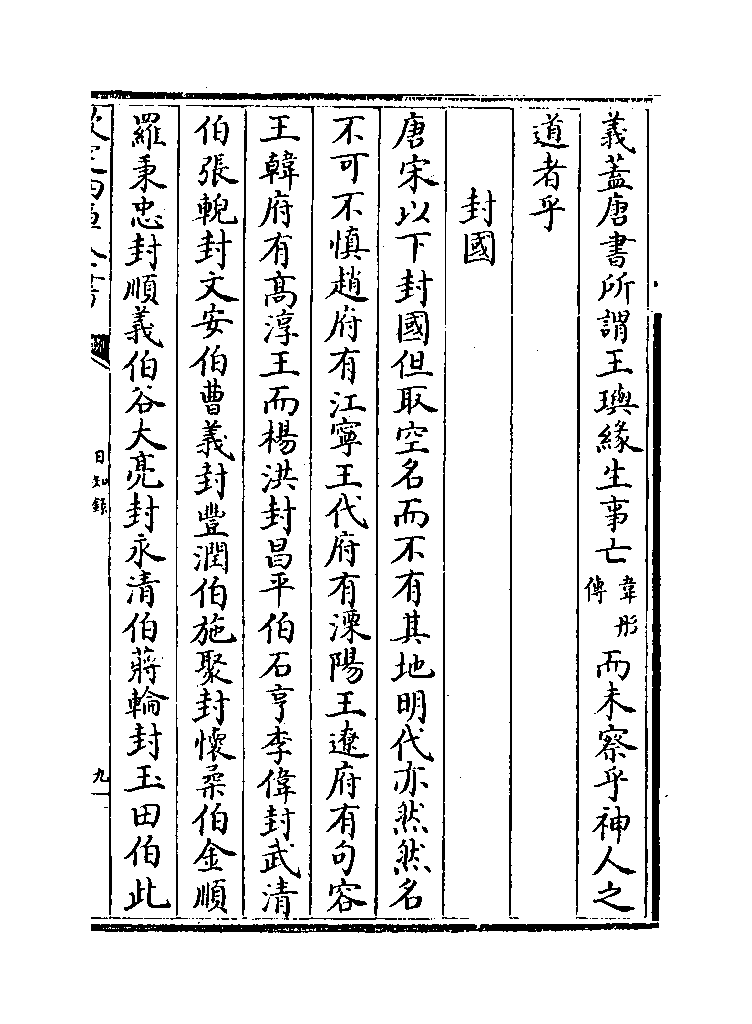 義蓋唐書所謂王璵緣生事亡韋彤傳而未察乎神人之
道者乎
封國
唐宋以下封國但取空名而不有其地明代亦然然名
不可不慎趙府有江寧王代府有溧陽王遼府有句容
王韓府有高淳王而楊洪封昌平伯石亨李偉封武清
伯張輗封文安伯曹義封豐潤伯施聚封懷柔伯金順
羅秉忠封順義伯谷大亮封永清伯蔣輪封玉田伯此
欽定四庫全書
日知錄
九